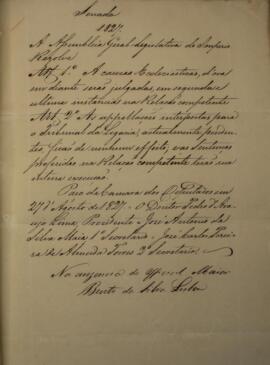 Senado
1827.
A Assembléa Geral Legislativa do Imperio
Resolve
Art. 1º A causas Ecclesiasticas, d'ora
em diante serão julgadas, em segunda e
ultima instancia na Relação competente
Art. 2º As appellações interpostas para
o Tribunal da Legacia, actualmente penden-
tes, de nenhum effeito, e as Sentenças
proferidas na Relação competente terão sua
inteira execução.
Paço da Camara dos Deputados em
27 d'Agosto de 1827. O Doutor Pedro d'Arau-
jo Lima, Presidente - José Antonio da
Silva Maia 1º Secretario - José Carlos Perei-
ra de Almeida Torres 2º Secretario.
Na ausencia do Official Maior
Bento da Silva Lisboa